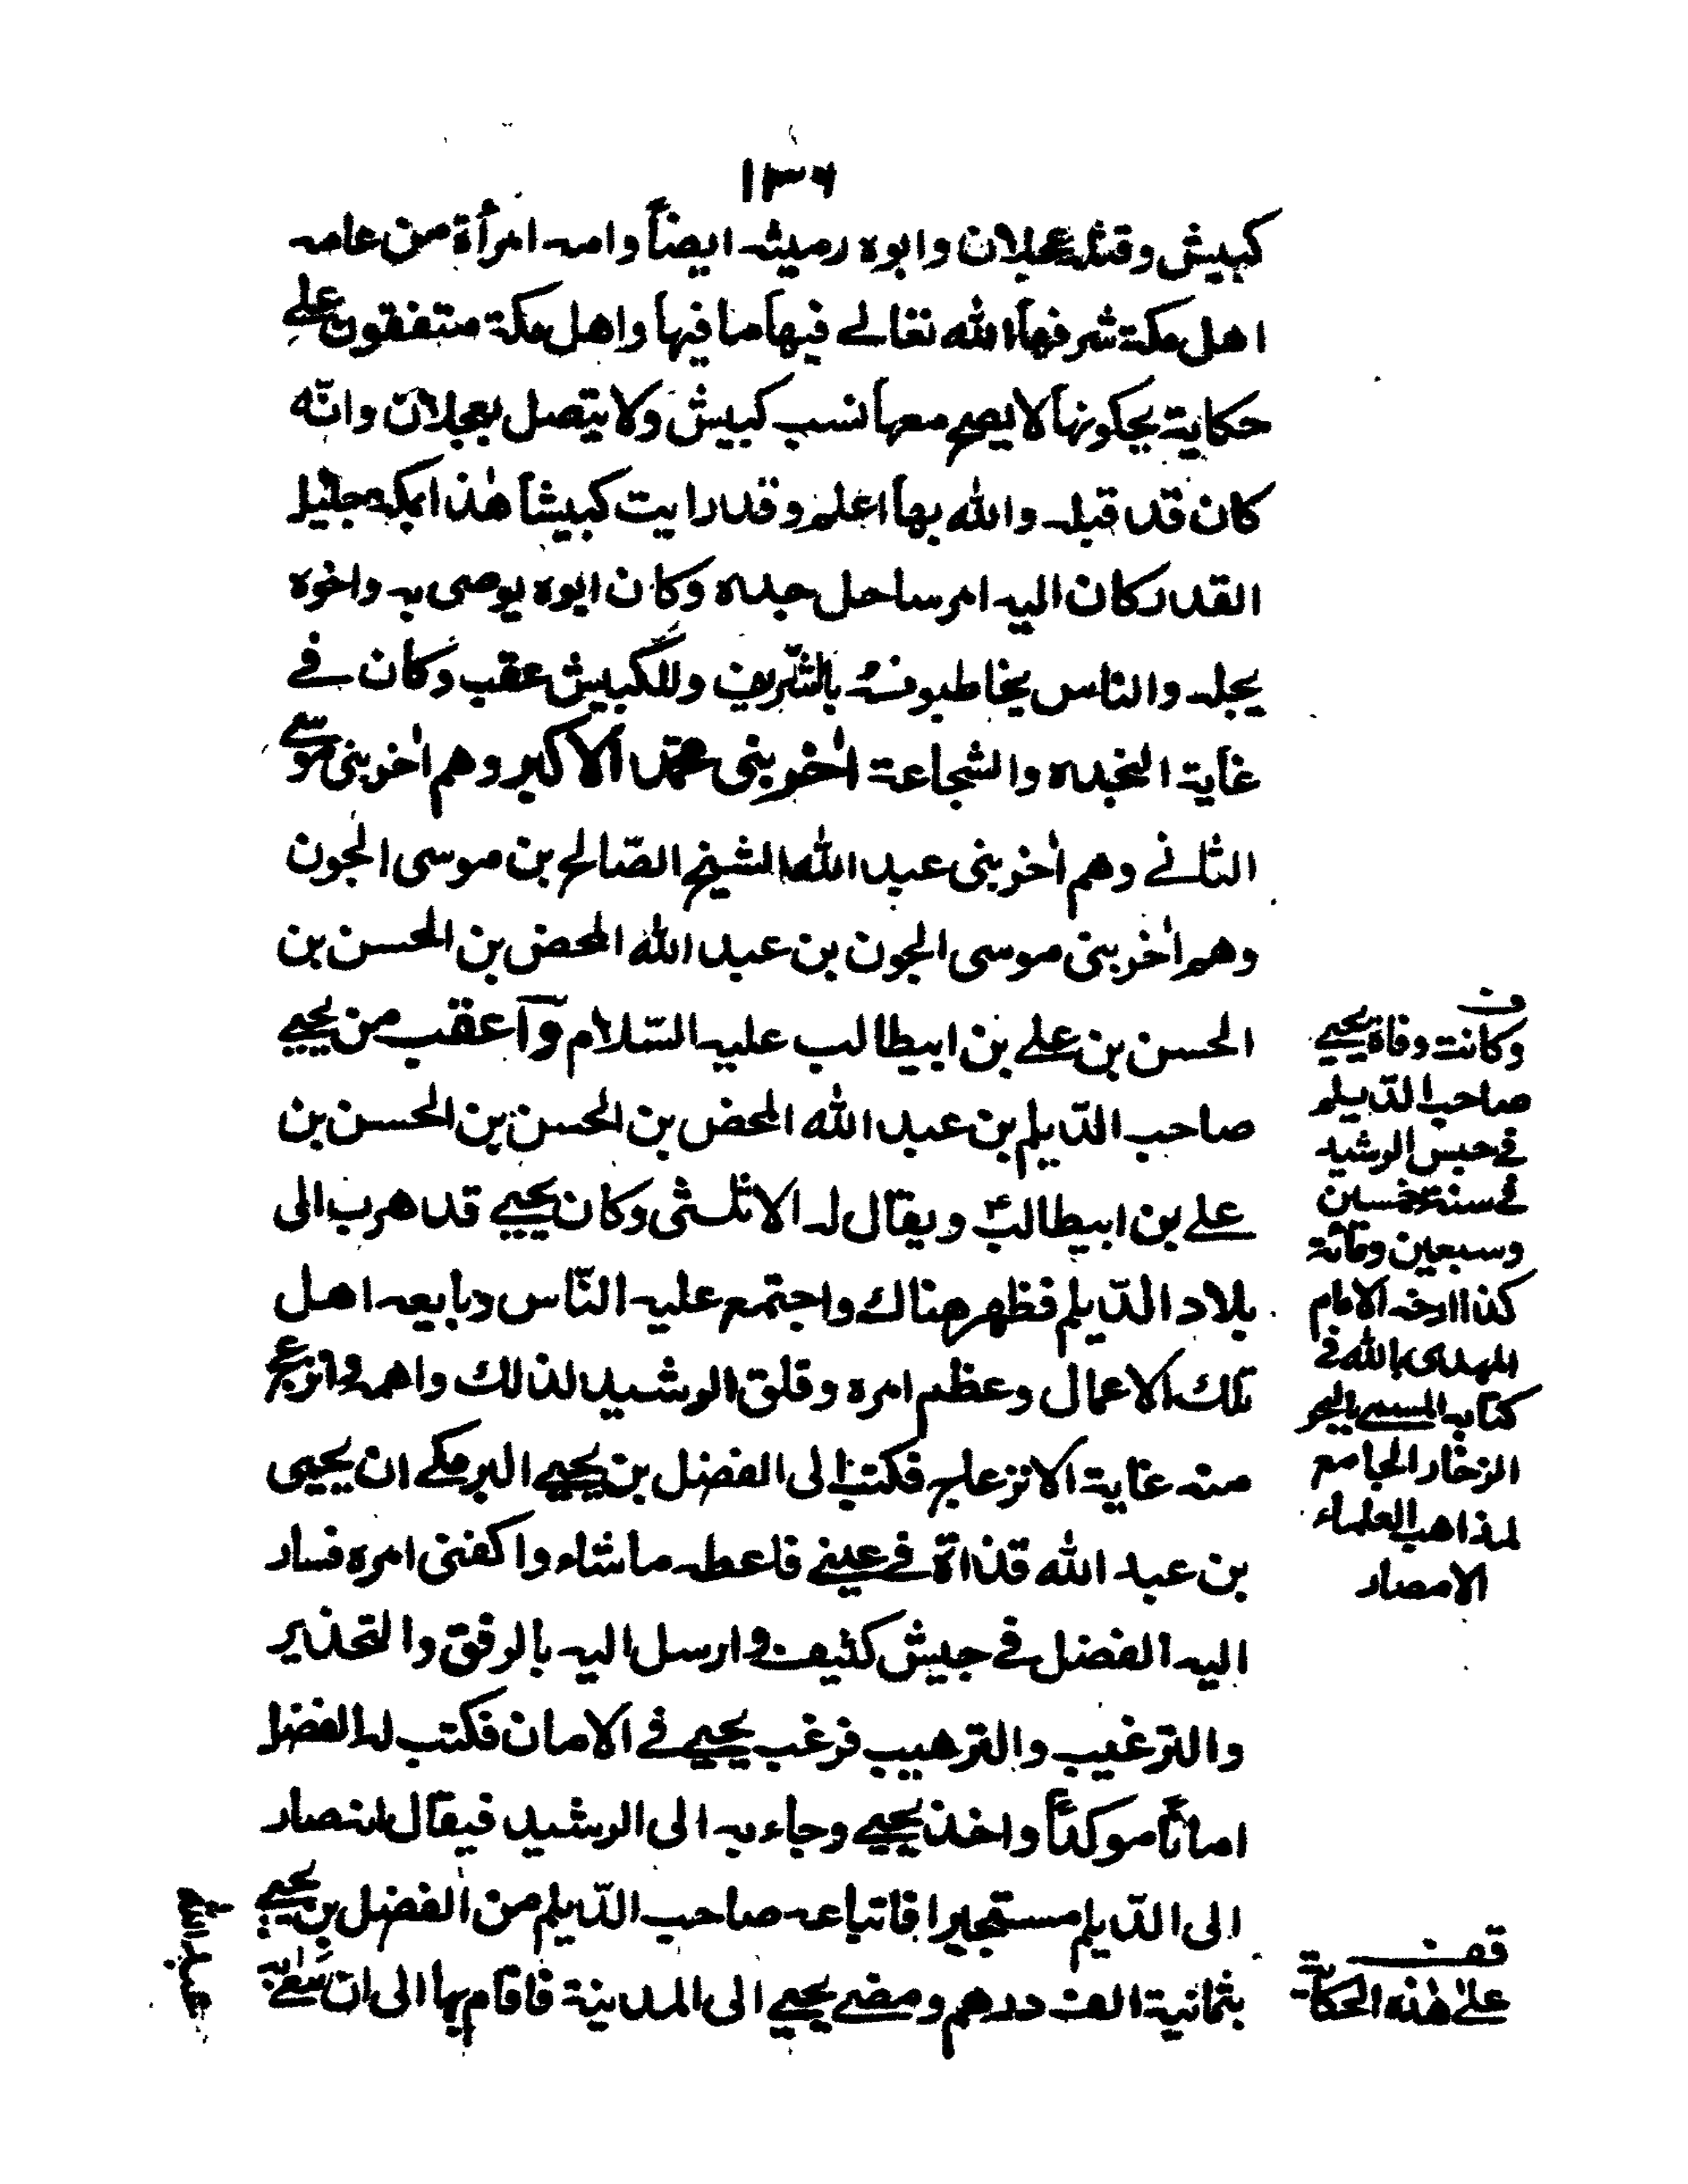 ١٣٦
كبيش وقتله عجلان وابوه رميثه ايضاً وامه امرأة من عامه
اهل مكة شرفها الله تعالے فيها ما فيها واهل مكة متفقون علے
حكاية يحكونها لا يصح معها نسب كبيش ولا يتصل بعجلان وانّه
كان قد قبله والله بها اعلم وقد رايت كبيشا هٰذا بمكه جليل
القدر كان اليه امر ساحل جده وكان ابوه يوصى به واخوه
يجله والناس يخاطبونهُ بالشّريف وللكبيش عقب وكان فے
غاية النجده والشجاعة اٰخر بنى محمّد الاكبر وهم اٰخر بنى موسے
الثانے وهم اٰخر بنى عبد الله الشيخ الصّالح بن موسى الجون
وهم اٰخر بنى موسى الجون بن عبد الله المحض بن الحسن بن
الحسن بن علے بن ابيطالب عليه السّلام وآعقب من يحيے
صاحب الدّيلم بن عبد الله المحض بن الحسن بن الحسن بن
علے بن ابيطالبؑ ويقال له الاثلثى وكان يحيے قد هرب الى
بلاد الدّيلم فظهر هناك واجتمع عليه النّاس وبايعه اهل
تلك الاعمال وعظم امره وقلق الرشيد لذالك واهمه وانزعج
منه غاية الانزعاج فكتب الى الفضل بن يحيے البرمكے ان يحيى
بن عبد الله قذاة فے عينے فاعطه ما شاء واكفنى امره فسار
اليه الفضل فے جيش كثيف وارسل اليه بالرفق والتحذير
والترغيب والترهيب فرغب يحيے فے الامان فكتب له الفضل
اماناً موكداً واخذ يحيے وجاء به الى الرشيد فيقال انه صار
الى الدّيلم مستجيرا فاتباعه صاحب الدّيلم من الفضل بن يحيے
بثمانية الف درهم ومضے يحيے الى المدينة فاقام بها الى ان سعٰے به
ف
وكانت وفاة يحيے
صاحب الدّيلم
فے حبس الرشيد
فے سنة خمسين
وسبعين ومائة
كذا ارخه الامام
المهدى بالله فے
كتابه المسمے بالبحر
الزخار الجامع
لمذاهب العلماء
الامصار
قف
علےٰ هٰذه الحكاية
عبد الله